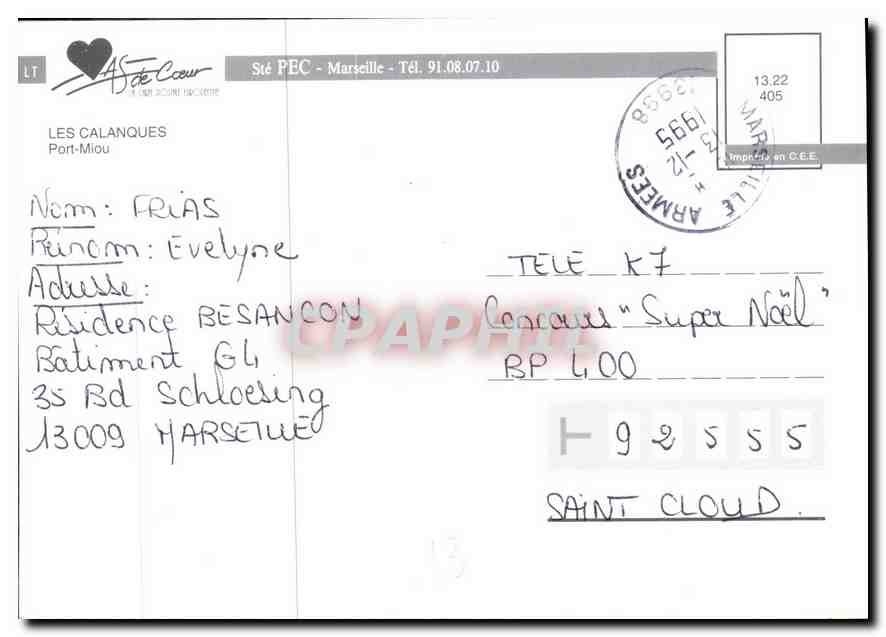 LT
AS de Cœur
LA CARTE POSTALE EUROPEENNE
Sté PEC - Marseille - Tél. 91.08.07.10
LES CALANQUES
Port-Miou
13.22
405
Imprimé en C.E.E.
MARSEILLE ARMEES
13-12
1995
13998
Nom: FRIAS
Prénom: Evelyne
Adresse:
Résidence BESANCON
Bâtiment G4
35 Bd Schloesing
13009 MARSEILLE
TELE K7
Concours "Super Noël"
BP 400
92555
SAINT CLOUD.
CPAPHIL